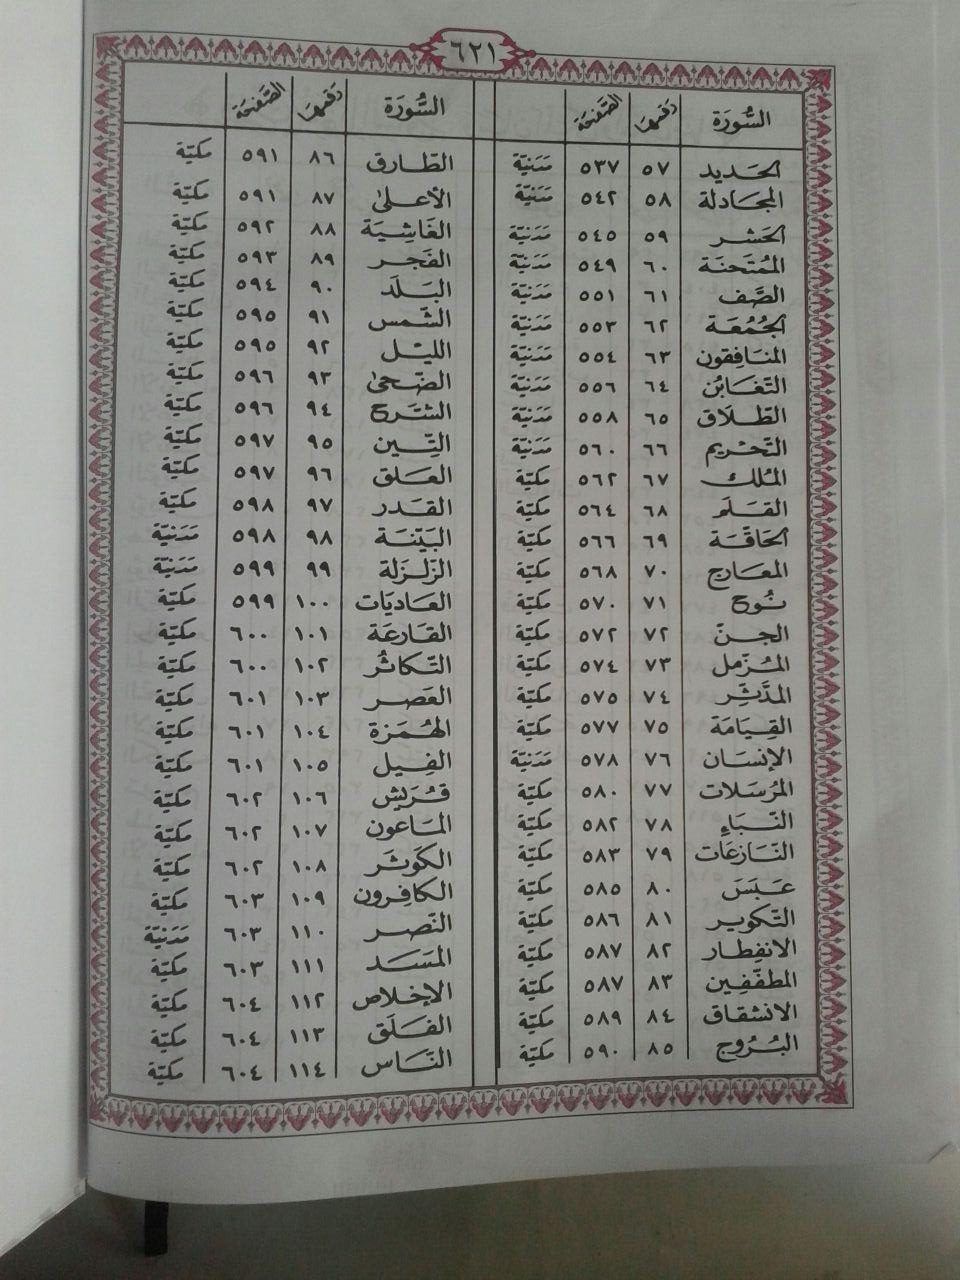 ٦٢١
السُّورَة رقمها الصَّفحَة
الحَديد ٥٧ ٥٣٧ مَدَنيّة
المجَادلة ٥٨ ٥٤٢ مَدَنيّة
الحَشر ٥٩ ٥٤٥ مَدَنيّة
المُمتَحنَة ٦٠ ٥٤٩ مَدَنيّة
الصَّف ٦١ ٥٥١ مَدَنيّة
الجُمُعَة ٦٢ ٥٥٣ مَدَنيّة
المنَافِقون ٦٣ ٥٥٤ مَدَنيّة
التّغَابُن ٦٤ ٥٥٦ مَدَنيّة
الطّلَاق ٦٥ ٥٥٨ مَدَنيّة
التّحْريم ٦٦ ٥٦٠ مَدَنيّة
المُلك ٦٧ ٥٦٢ مكيّة
القَلَم ٦٨ ٥٦٤ مكيّة
الحَاقّة ٦٩ ٥٦٦ مكيّة
المعَارج ٧٠ ٥٦٨ مكيّة
نُوح ٧١ ٥٧٠ مكيّة
الجنّ ٧٢ ٥٧٢ مكيّة
المُزّمل ٧٣ ٥٧٤ مكيّة
المدَّثِّر ٧٤ ٥٧٥ مكيّة
القِيَامَة ٧٥ ٥٧٧ مكيّة
الإنسَان ٧٦ ٥٧٨ مَدَنيّة
المُرسَلات ٧٧ ٥٨٠ مكيّة
النّبَإِ ٧٨ ٥٨٢ مكيّة
النّازعَات ٧٩ ٥٨٣ مكيّة
عَبَسَ ٨٠ ٥٨٥ مكيّة
التّكوير ٨١ ٥٨٦ مكيّة
الانفِطار ٨٢ ٥٨٧ مكيّة
المطفّفِين ٨٣ ٥٨٧ مكيّة
الانشقاق ٨٤ ٥٨٩ مكيّة
البُرُوج ٨٥ ٥٩٠ مكيّة
السُّورَة رقمها الصَّفحَة
الطّارق ٨٦ ٥٩١ مكيّة
الأعلىٰ ٨٧ ٥٩١ مكيّة
الغَاشِيَة ٨٨ ٥٩٢ مكيّة
الفَجر ٨٩ ٥٩٣ مكيّة
البَلَد ٩٠ ٥٩٤ مكيّة
الشّمس ٩١ ٥٩٥ مكيّة
الليْل ٩٢ ٥٩٥ مكيّة
الضّحىٰ ٩٣ ٥٩٦ مكيّة
الشّرح ٩٤ ٥٩٦ مكيّة
التِّين ٩٥ ٥٩٧ مكيّة
العَلق ٩٦ ٥٩٧ مكيّة
القَدر ٩٧ ٥٩٨ مكيّة
البَيّنَة ٩٨ ٥٩٨ مَدَنيّة
الزّلزَلة ٩٩ ٥٩٩ مَدَنيّة
العَاديَات ١٠٠ ٥٩٩ مكيّة
القَارعَة ١٠١ ٦٠٠ مكيّة
التّكاثُر ١٠٢ ٦٠٠ مكيّة
العَصر ١٠٣ ٦٠١ مكيّة
الهُمَزة ١٠٤ ٦٠١ مكيّة
الفِيل ١٠٥ ٦٠١ مكيّة
قُرَيش ١٠٦ ٦٠٢ مكيّة
المَاعون ١٠٧ ٦٠٢ مكيّة
الكَوثر ١٠٨ ٦٠٢ مكيّة
الكافِرون ١٠٩ ٦٠٣ مكيّة
النّصر ١١٠ ٦٠٣ مَدَنيّة
المَسَد ١١١ ٦٠٣ مكيّة
الإخلاص ١١٢ ٦٠٤ مكيّة
الفَلَق ١١٣ ٦٠٤ مكيّة
النّاس ١١٤ ٦٠٤ مكيّة